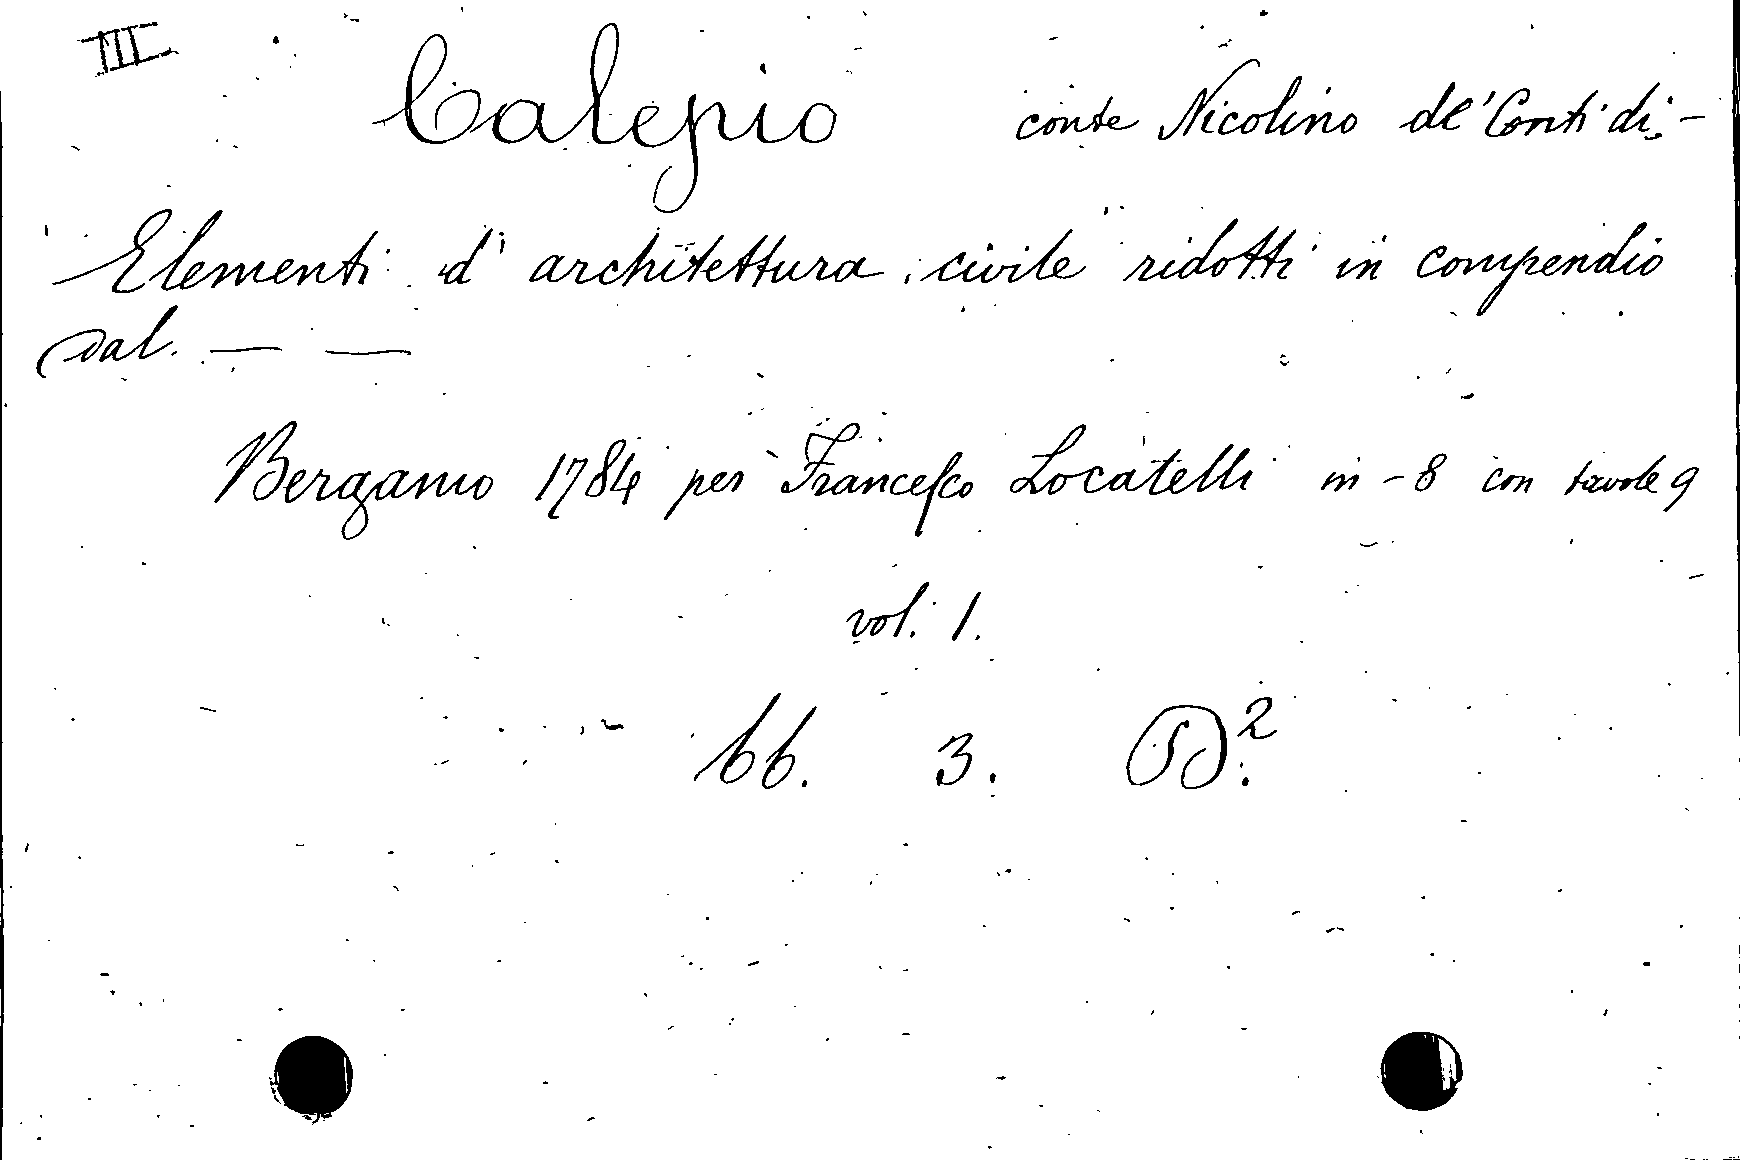 III
Calepio conte Nicolino de' Conti di -
Elementi d'architettura civile ridotti in compendio
dal. — —
Bergamo 1784 per Francesco Locatelli in-8 con tavole 9
vol. 1.
66. 3. D².